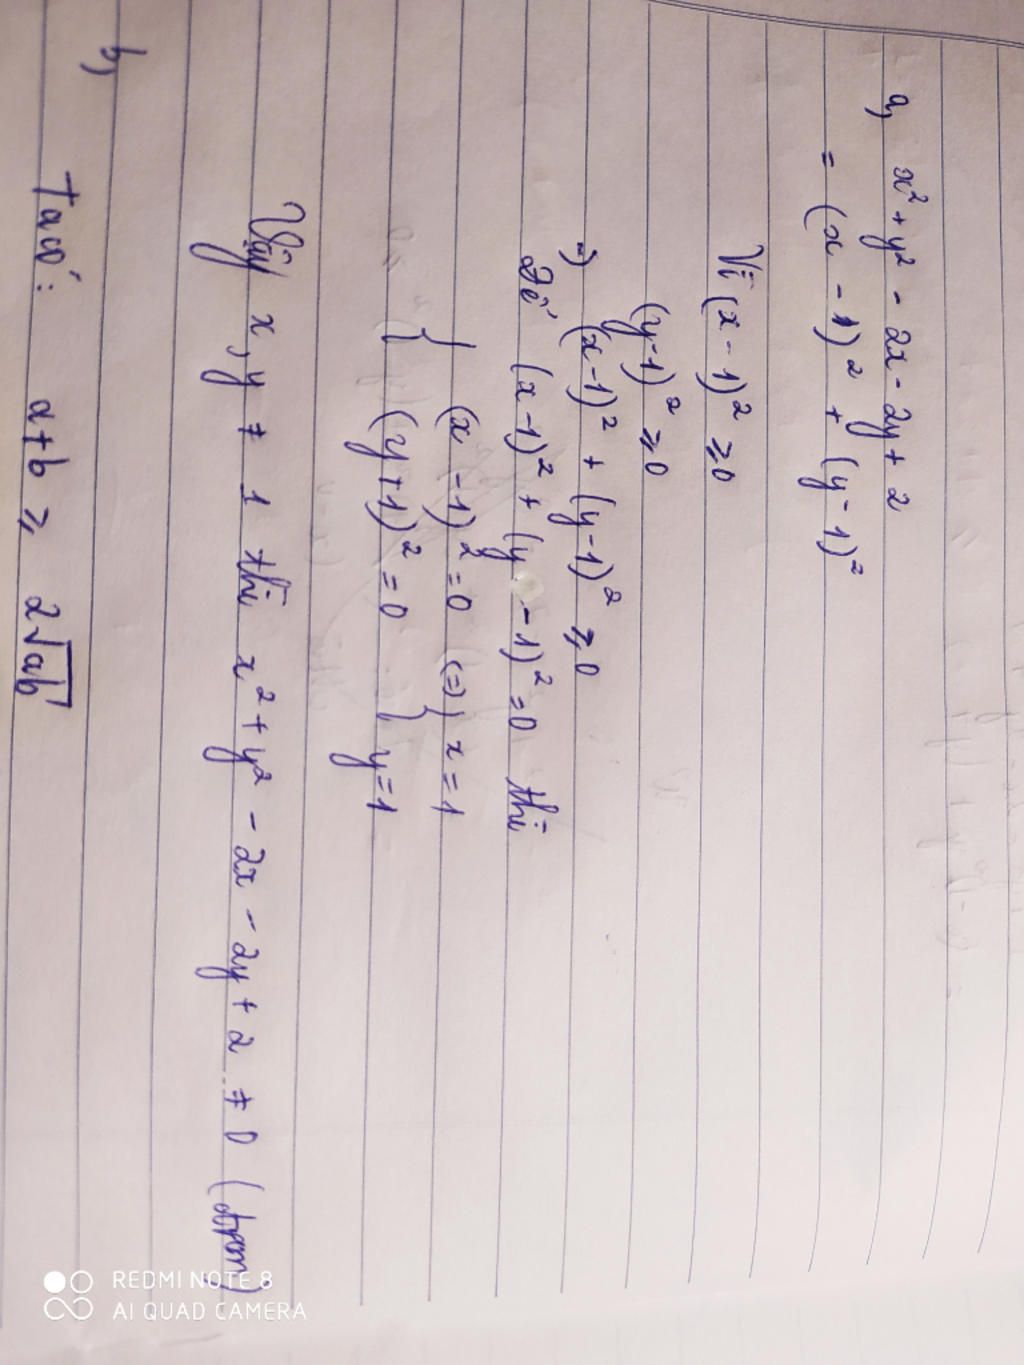 a, x² + y² - 2x - 2y + 2
= (x - 1)² + (y - 1)²
Vì (x - 1)² ⩾ 0
(y-1)² ⩾ 0
=) (x-1)² + (y-1)² ⩾ 0
Để (x-1)² + (y - 1)² = 0 thì
{ (x - 1)² = 0 (=) { x = 1
(y + 1)² = 0 y = 1
Vậy x, y ≠ 1 thì x² + y² - 2x - 2y + 2 ≠ 0 (đpcm)
b,
Ta có: a + b ⩾ 2√ab
REDMI NOTE 8
AI QUAD CAMERA